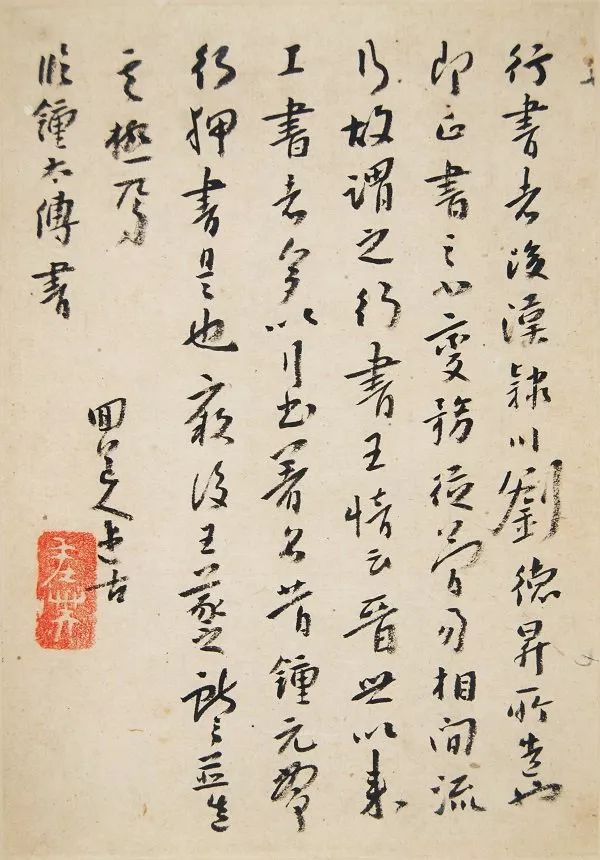 行書者後漢川劉德昇所造也
即正書之小變務從簡易相間流
行故謂之行書王愔云晉世以來
工書者多以行書著名昔鍾元常
行押書是也厥後王羲之獻之並造
其極焉
臨鍾太傅書
人